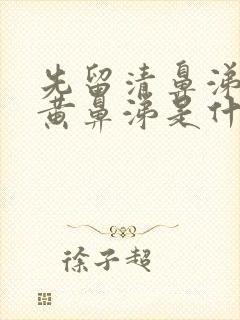 先留清鼻涕
黄鼻涕是什
徐子超